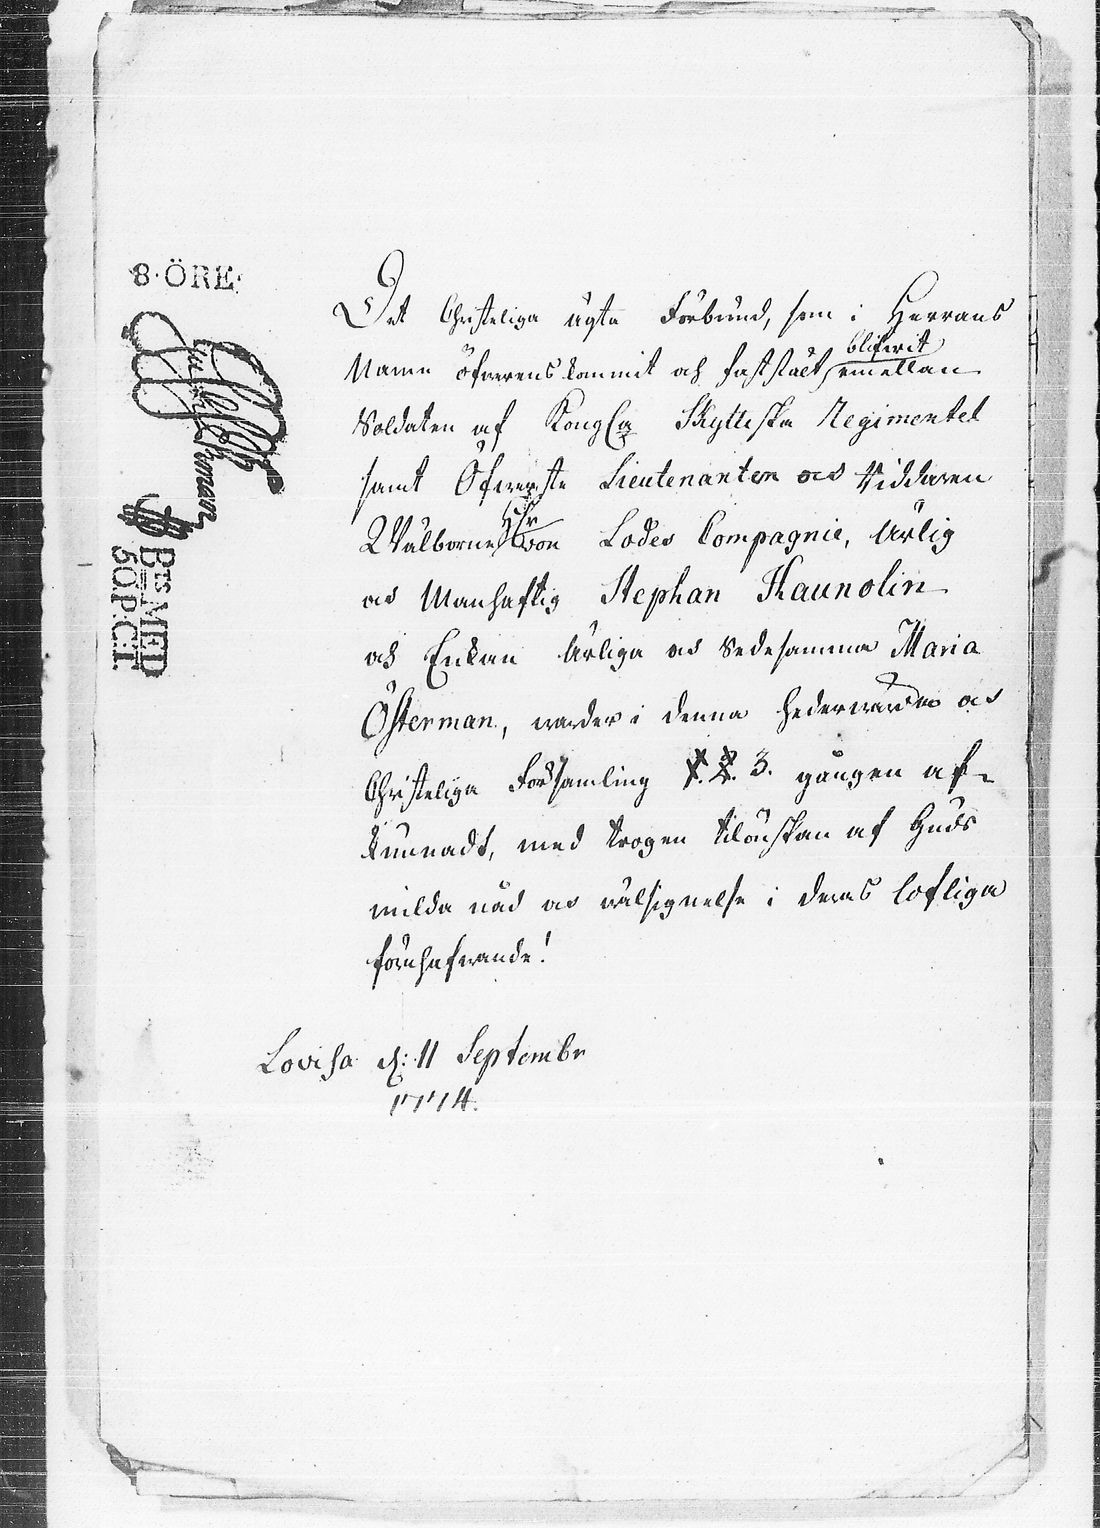 8·ÖRE·
BTS MED
50.P:C:T.
Det Christeliga ägta Förbund, som i Herrans
Namn öfwerenskommit och fastställt blifwit emellan
Soldaten af Kongl Skyttska Regimentet
samt Öfwerste Lieutenanten och Riddaren
Wälborne Hr von Lodes Compagnie, Ärlig
och Manhaftig Stephan Kaunolin
och Enkan Ärliga och Sedesamma Maria
Österman, warder i denna hederwärda och
Christeliga Församling 1. 2. 3. gången af-
kunnadt, med trogen tilönskan af Guds
milda nåd och wälsignelse i deras lofliga
förehafwande!
Lovisa d: 11 Septembr
1774.